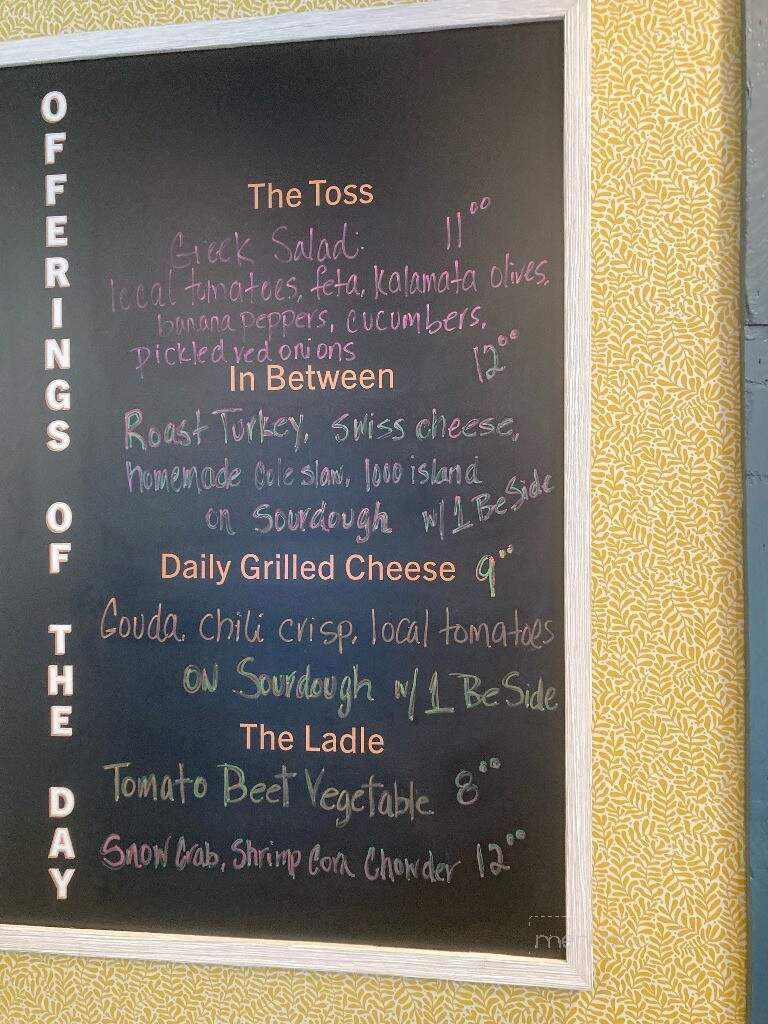 OFFERINGS OF THE DAY
The Toss
Greek Salad: 11⁰⁰
local tomatoes, feta, kalamata olives,
banana peppers, cucumbers,
pickled red onions
In Between 12⁰⁰
Roast Turkey, swiss cheese,
homemade cole slaw, 1000 island
on Sourdough w/ 1 BeSide
Daily Grilled Cheese 9⁰⁰
Gouda, chili crisp, local tomatoes
on Sourdough w/ 1 BeSide
The Ladle
Tomato Beet Vegetable 8⁰⁰
Snow Crab, Shrimp Corn Chowder 12⁰⁰